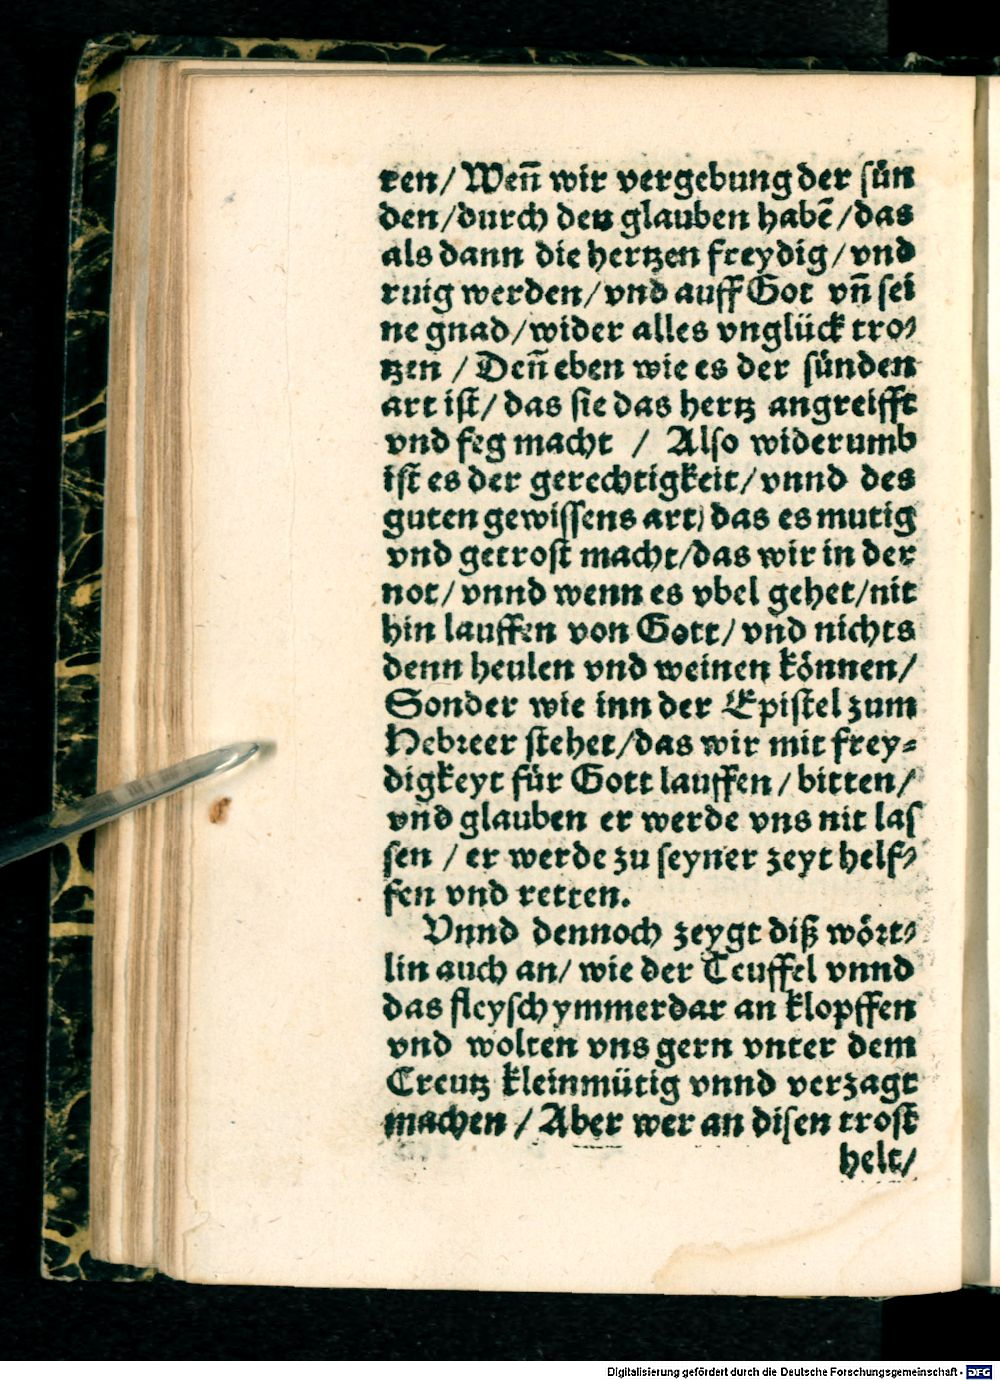 ren/ Weñ wir vergebung der sün
den/durch den glauben habẽ/das
als dann die hertzen freydig/vnd
ruig werden/vnd auff Got vñ sei
ne gnad/wider alles vnglück tro⸗
tzen / Deñ eben wie es der sünden
art ist/ das sie das hertz angreifft
vnd feg macht / Also widerumb
ist es der gerechtigkeit/vnnd des
guten gewissens art) das es mutig
vnd getrost macht/das wir in der
not/vnnd wenn es vbel gehet/nit
hin lauffen von Gott/vnd nichts
denn heulen vnd weinen können/
Sonder wie inn der Epistel zum
Hebreer stehet/das wir mit frey⸗
digkeyt für Gott lauffen/bitten/
vnd glauben er werde vns nit las
sen / er werde zu seyner zeyt helf⸗
fen vnd retten.
Vnnd dennoch zeygt diß wört⸗
lin auch an/ wie der Teuffel vnnd
das fleysch ymmerdar an klopffen
vnd wolten vns gern vnter dem
Creutz kleinmütig vnnd verzagt
machen/ Aber wer an disen trost
helt/
Digitalisierung gefördert durch die Deutsche Forschungsgemeinschaft - DFG